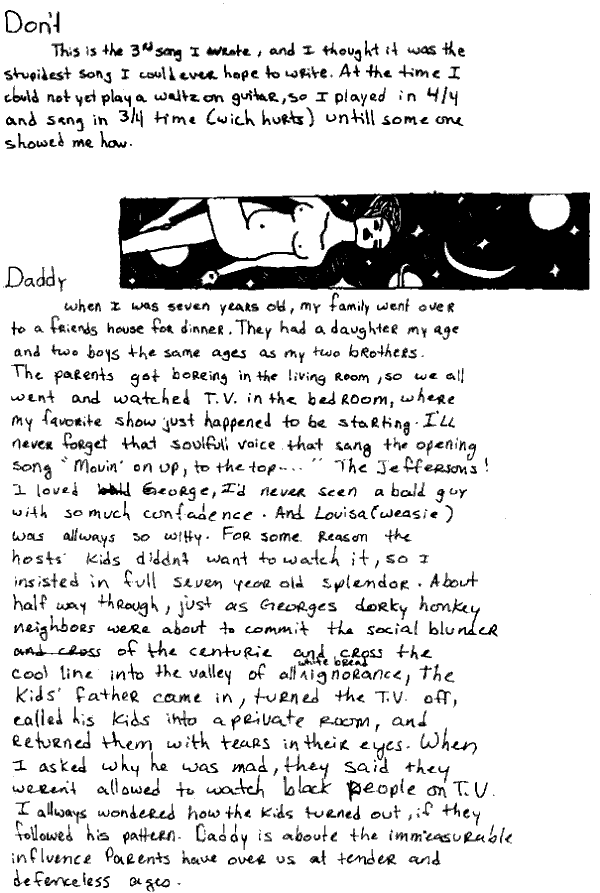 Don't
This is the 3rd song I wrote, and I thought it was the
stupidest song I could ever hope to write. At the time I
could not yet play a waltz on guitar, so I played in 4/4
and sang in 3/4 time (wich hurts) untill some one
showed me how.
Daddy
when I was seven years old, my family went over
to a friends house for dinner. They had a daughter my age
and two boys the same ages as my two brothers.
The parents got boreing in the living room, so we all
went and watched T.V. in the bedroom, where
my favorite show just happened to be starting. I'll
never forget that soulfull voice that sang the opening
song "Movin' on up, to the top----" The Jeffersons!
I loved bald George, I'd never seen a bald guy
with so much confadence. And Louisa (weasie)
was allways so witty. For some reason the
hosts' kids diddnt want to watch it, so I
insisted in full seven year old splendor. About
half way through, just as Georges dorky honkey
neighbors were about to commit the social blunder
and cross of the centurie and cross the
cool line into the valley of all white bread ignorance, The
Kids' father came in, turned the T.V. off,
called his kids into a private room, and
returned them with tears in their eyes. When
I asked why he was mad, they said they
weren't allowed to watch black people on T.V.
I allways wondered how the kids turned out, if they
followed his pattern. Daddy is aboute the immeasurable
influence Parents have over us at tender and
defenceless ages.